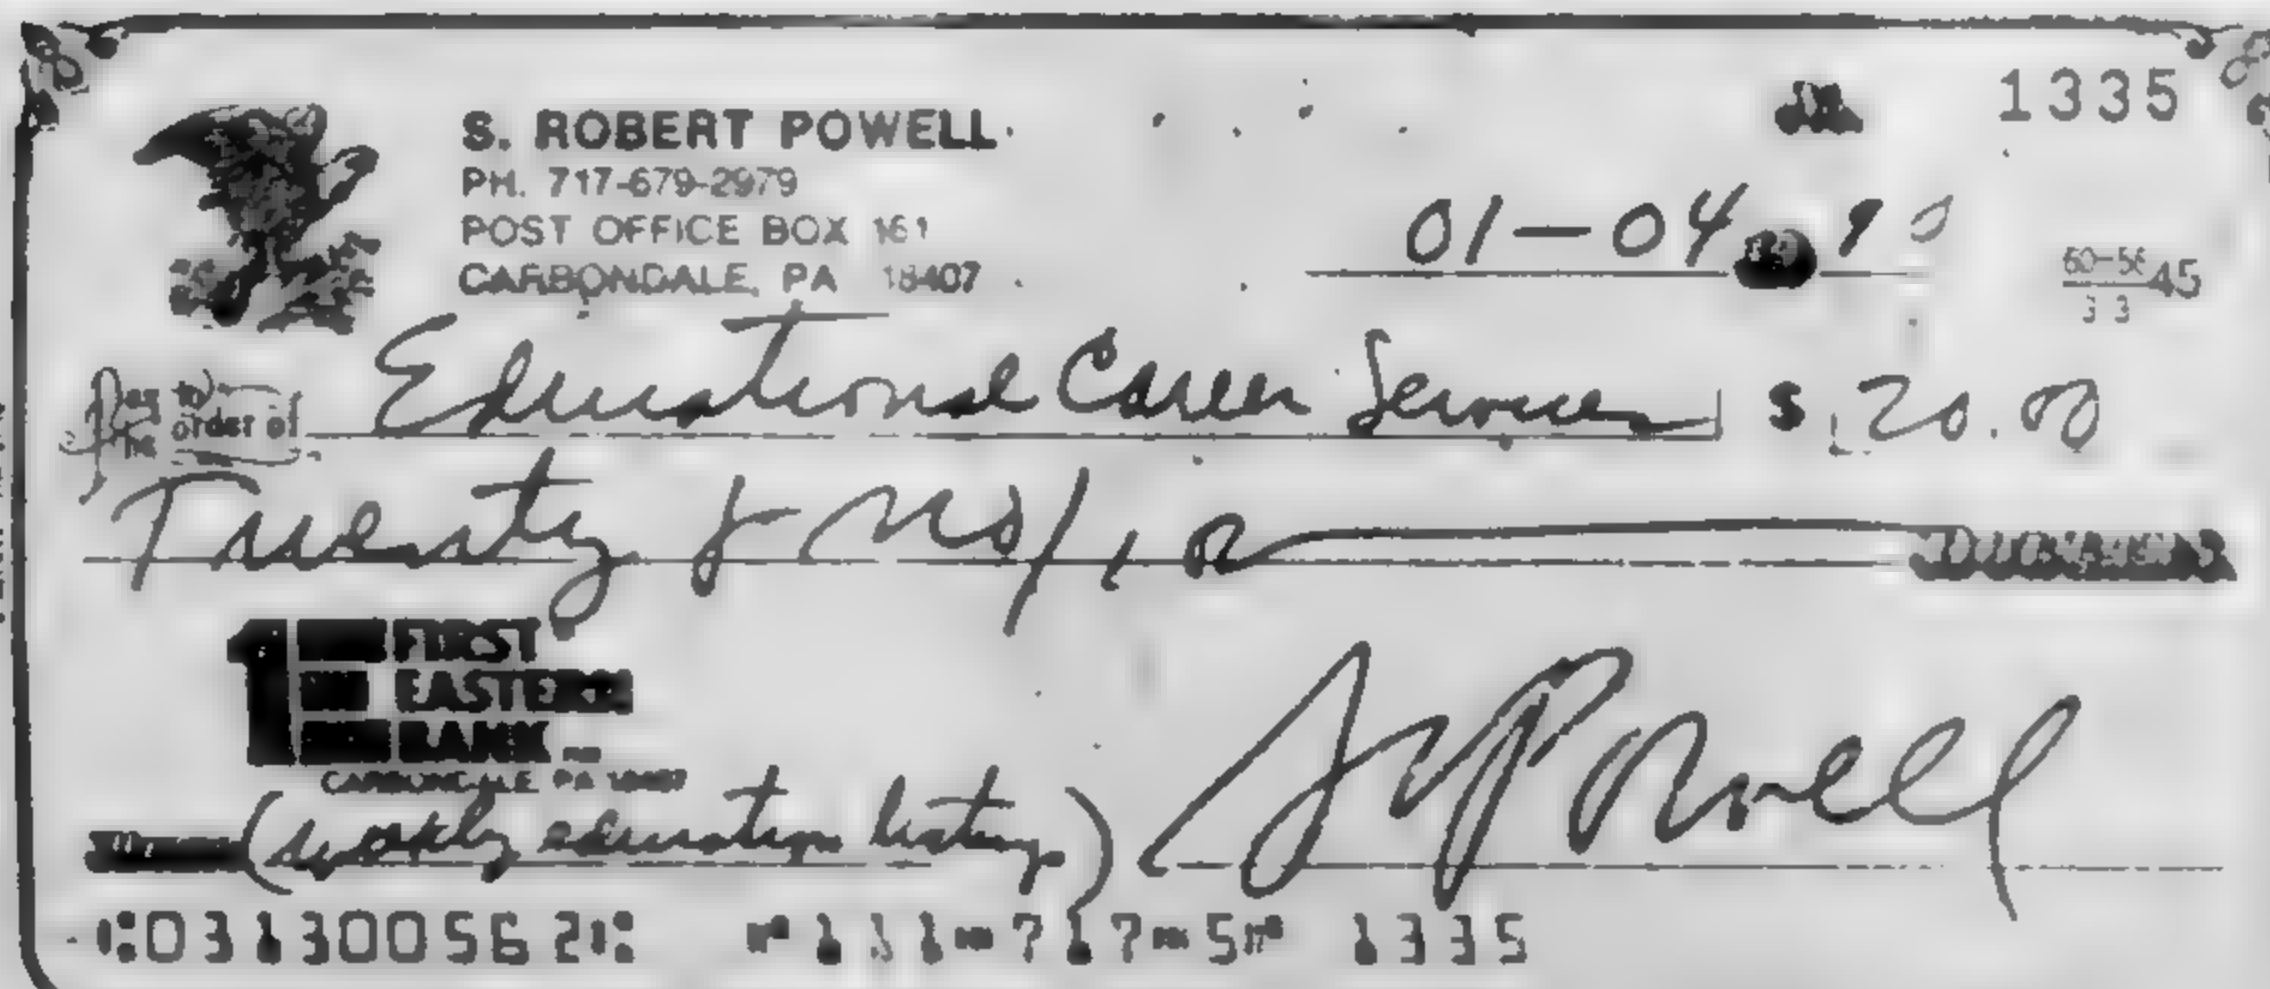 1335
S. ROBERT POWELL
PH. 717-679-2979
POST OFFICE BOX 161
CARBONDALE, PA 18407
01-04 90
60-56 45
33
Pay to the order of Educational Career Services $ 20.00
Twenty & no/100 DOLLARS
1 FIRST
EASTERN
BANK
CARBONDALE PA 18407
(weekly education listings) S R Powell
⑆031300562⑆ ⑈111-717-5⑈ 1335